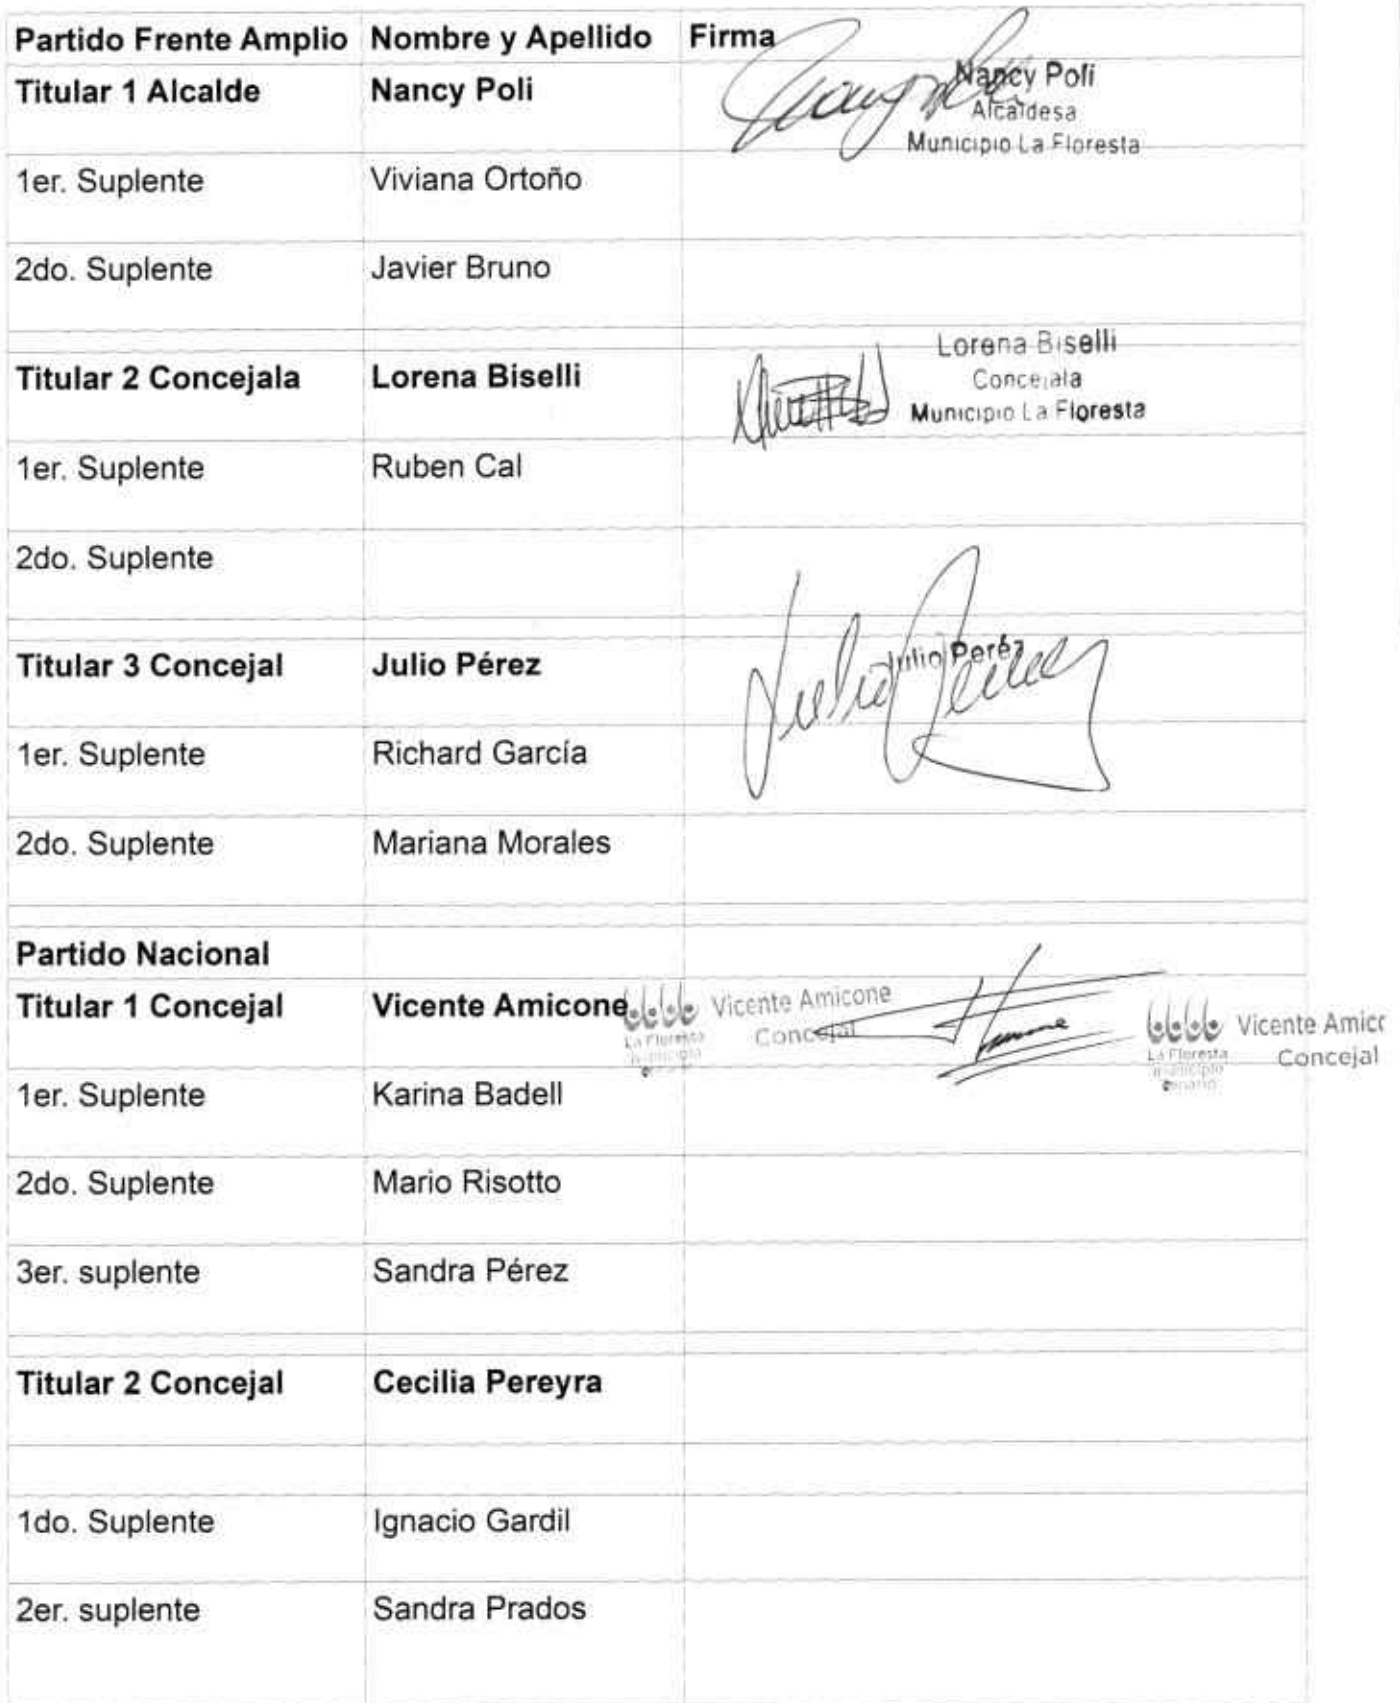 Partido Frente Amplio Nombre y Apellido Firma
Titular 1 Alcalde Nancy Poli
Nancy Poli
Alcaldesa
Municipio La Floresta
1er. Suplente Viviana Ortoño
2do. Suplente Javier Bruno
Titular 2 Concejala Lorena Biselli
Lorena Biselli
Concejala
Municipio La Floresta
1er. Suplente Ruben Cal
2do. Suplente
Titular 3 Concejal Julio Pérez
Julio Peréz
1er. Suplente Richard García
2do. Suplente Mariana Morales
Partido Nacional
Titular 1 Concejal Vicente Amicone
Vicente Amicone
Concejal
La Floresta
Vicente Amicc
Concejal
La Floresta
municipio
1er. Suplente Karina Badell
2do. Suplente Mario Risotto
3er. suplente Sandra Pérez
Titular 2 Concejal Cecilia Pereyra
1do. Suplente Ignacio Gardil
2er. suplente Sandra Prados